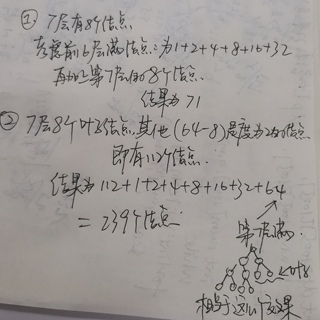 ① 7层有8个结点
考虑前6层满结点:为1+2+4+8+16+32
再加上第7层的8个结点
结果为71
② 7层8个叶子结点,其他(64-8)是度为2的结点
即有112个结点.
结果为112+1+2+4+8+16+32+64
=239个结点
第7层满.
叶8
相当于这个效果